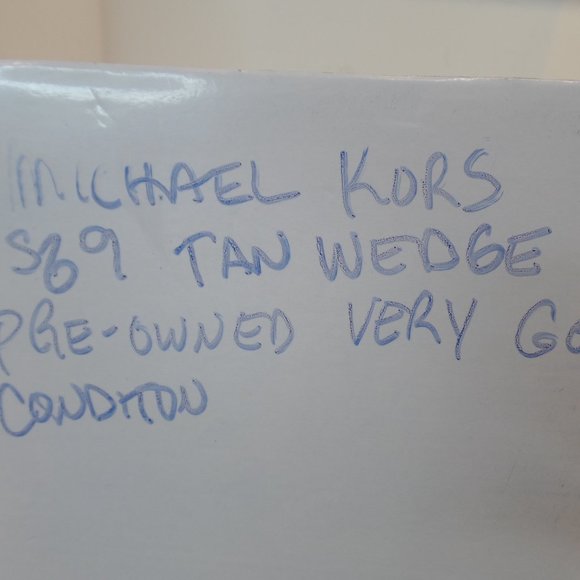 MICHAEL KORS
S69 TAN WEDGE
PRE-OWNED VERY GO
CONDITON